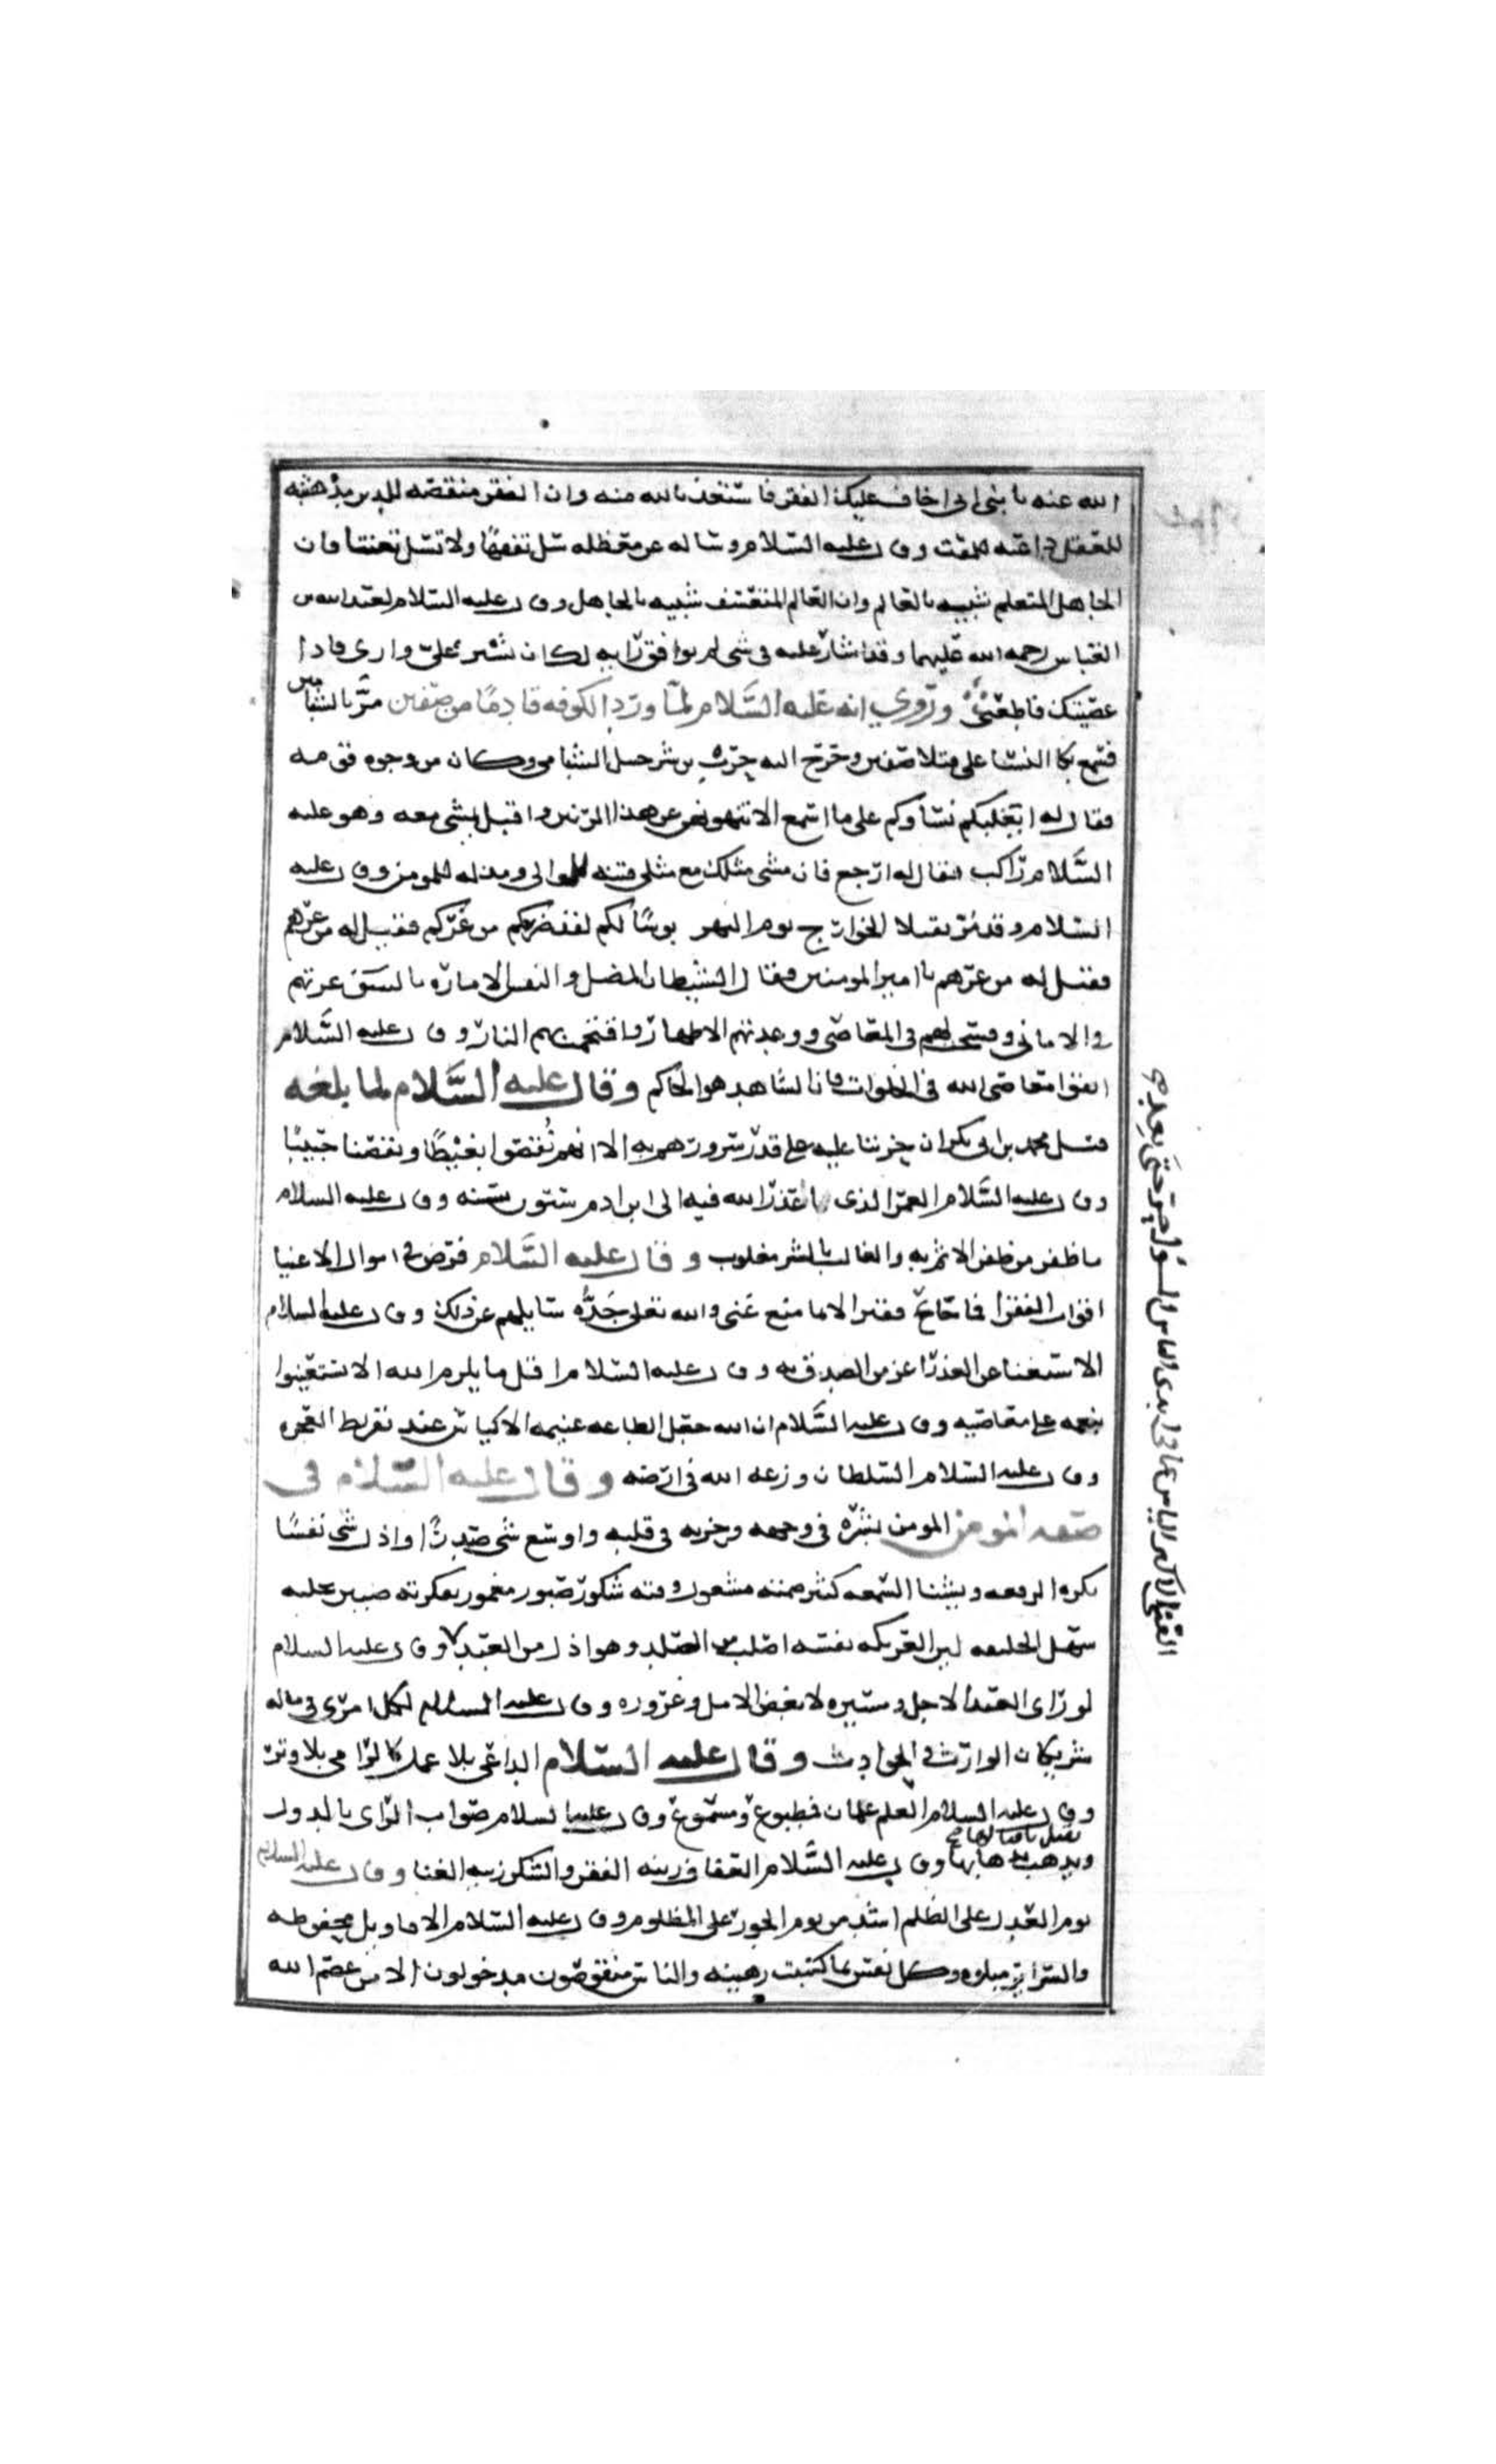 الله عنه يا بني اني اخاف عليك الفقر فاستعذ بالله منه وان الفقر منقصه للدين مدهشه
للعقل داعيه للمقت وقال عليه السلام وساله عن معظله سل تفقها ولا تسل تعنتا فان
الجاهل المتعلم شبيه بالعالم وان العالم المتعسف شبيه بالجاهل وقال عليه السلام لعبد الله بن
العباس رحمه الله عليهما وقد اشار عليه في شي لم يوافق رايه لك ان تشير علي واري فاذا
عصيتك فاطعني وروي انه عليه السلام لما ورد الكوفه قادما من صفين مر بالشباميين
فسمع بكا النسا على قتلا صفين وخرج اليه حرب بن شرحبيل الشبامي وكان من وجوه قومه
فقال له ايغلبكم نساوكم على ما اسمع الا تنهونهن عن هذا الرنين واقبل يمشي معه وهو عليه
السلام راكب فقال له ارجع فان مشي مثلك مع مثلي فتنه للوالي ومذله للمومن وقال عليه
السلام وقد مر بقتلا الخوارج يوم النهر بوسا لكم لقد ضركم من غركم فقيل له من غرهم
فقيل له من غرهم يا امير المومنين فقال الشيطان المضل والنفس الاماره بالسو غرتهم
في الاماني وفسحت لهم في المعاصي ووعدتهم الاظهار واقتحمت بهم النار وقال عليه السلام
اتقوا معاصي الله في الخلوات فان الشاهد هو الحاكم وقال عليه السلام لما بلغه
قتل محمد بن ابي بكر ان حزننا عليه على قدر سرورهم به الا انهم نقصوا بغيضا ونقصنا حبيبا
وقال عليه السلام العمر الذي اعذر الله فيه الى ابن ادم ستون سنه وقال عليه السلام
ما ظفر من ظفر الاثم به والغالب بالشر مغلوب وقال عليه السلام فرض في اموال الاغنيا
اقوات الفقرا فما جاع فقير الا بما منع غني والله تعلى جده سايلهم عن ذلك وقال عليه السلام
الاستغنا عن العذر اعز من الصدق به وقال عليه السلام اقل ما يلزم الله الا تستعينوا
بنعمه على معاصيه وقال عليه السلام ان الله جعل الطاعه غنيمه الاكياس عند تفريط العجزه
وقال عليه السلام السلطان وزعه الله في ارضه وقال عليه السلام في
صفه المومن المومن بشره في وجهه وحزنه في قلبه واوسع شي صدرا واذل شي نفسا
يكره الرفعه ويشنا السمعه كثير صمته مشغول وقته شكور صبور مغمور بفكرته ضنين بخلته
سهل الخليقه لين العريكه نفسه اصلب من الصلد وهو اذل من العبد وقال عليه السلام
لو راى العبد الاجل ومسيره لابغض الامل وغروره وقال عليه السلام لكل امرئ في ماله
شريكان الوارث والحوادث وقال عليه السلام الداعي بلا عمل كالرامي بلا وتر
وقال عليه السلام العلم علمان مطبوع ومسموع وقال عليه السلام صواب الراى بالدول
يقبل باقبالها
ويذهب بذهابها وقال عليه السلام العفاف زينه الفقر والشكر زينه الغنا وقال عليه السلام
يوم العدل على الظلم اشد من يوم الجور على المظلوم وقال عليه السلام الاقاويل محفوظه
والسراير مبلوه وكل نفس بما كسبت رهينه والناس منقوصون مدخولون الا من عصم الله
الغنى الاكبر الياس عما في ايدي الناس